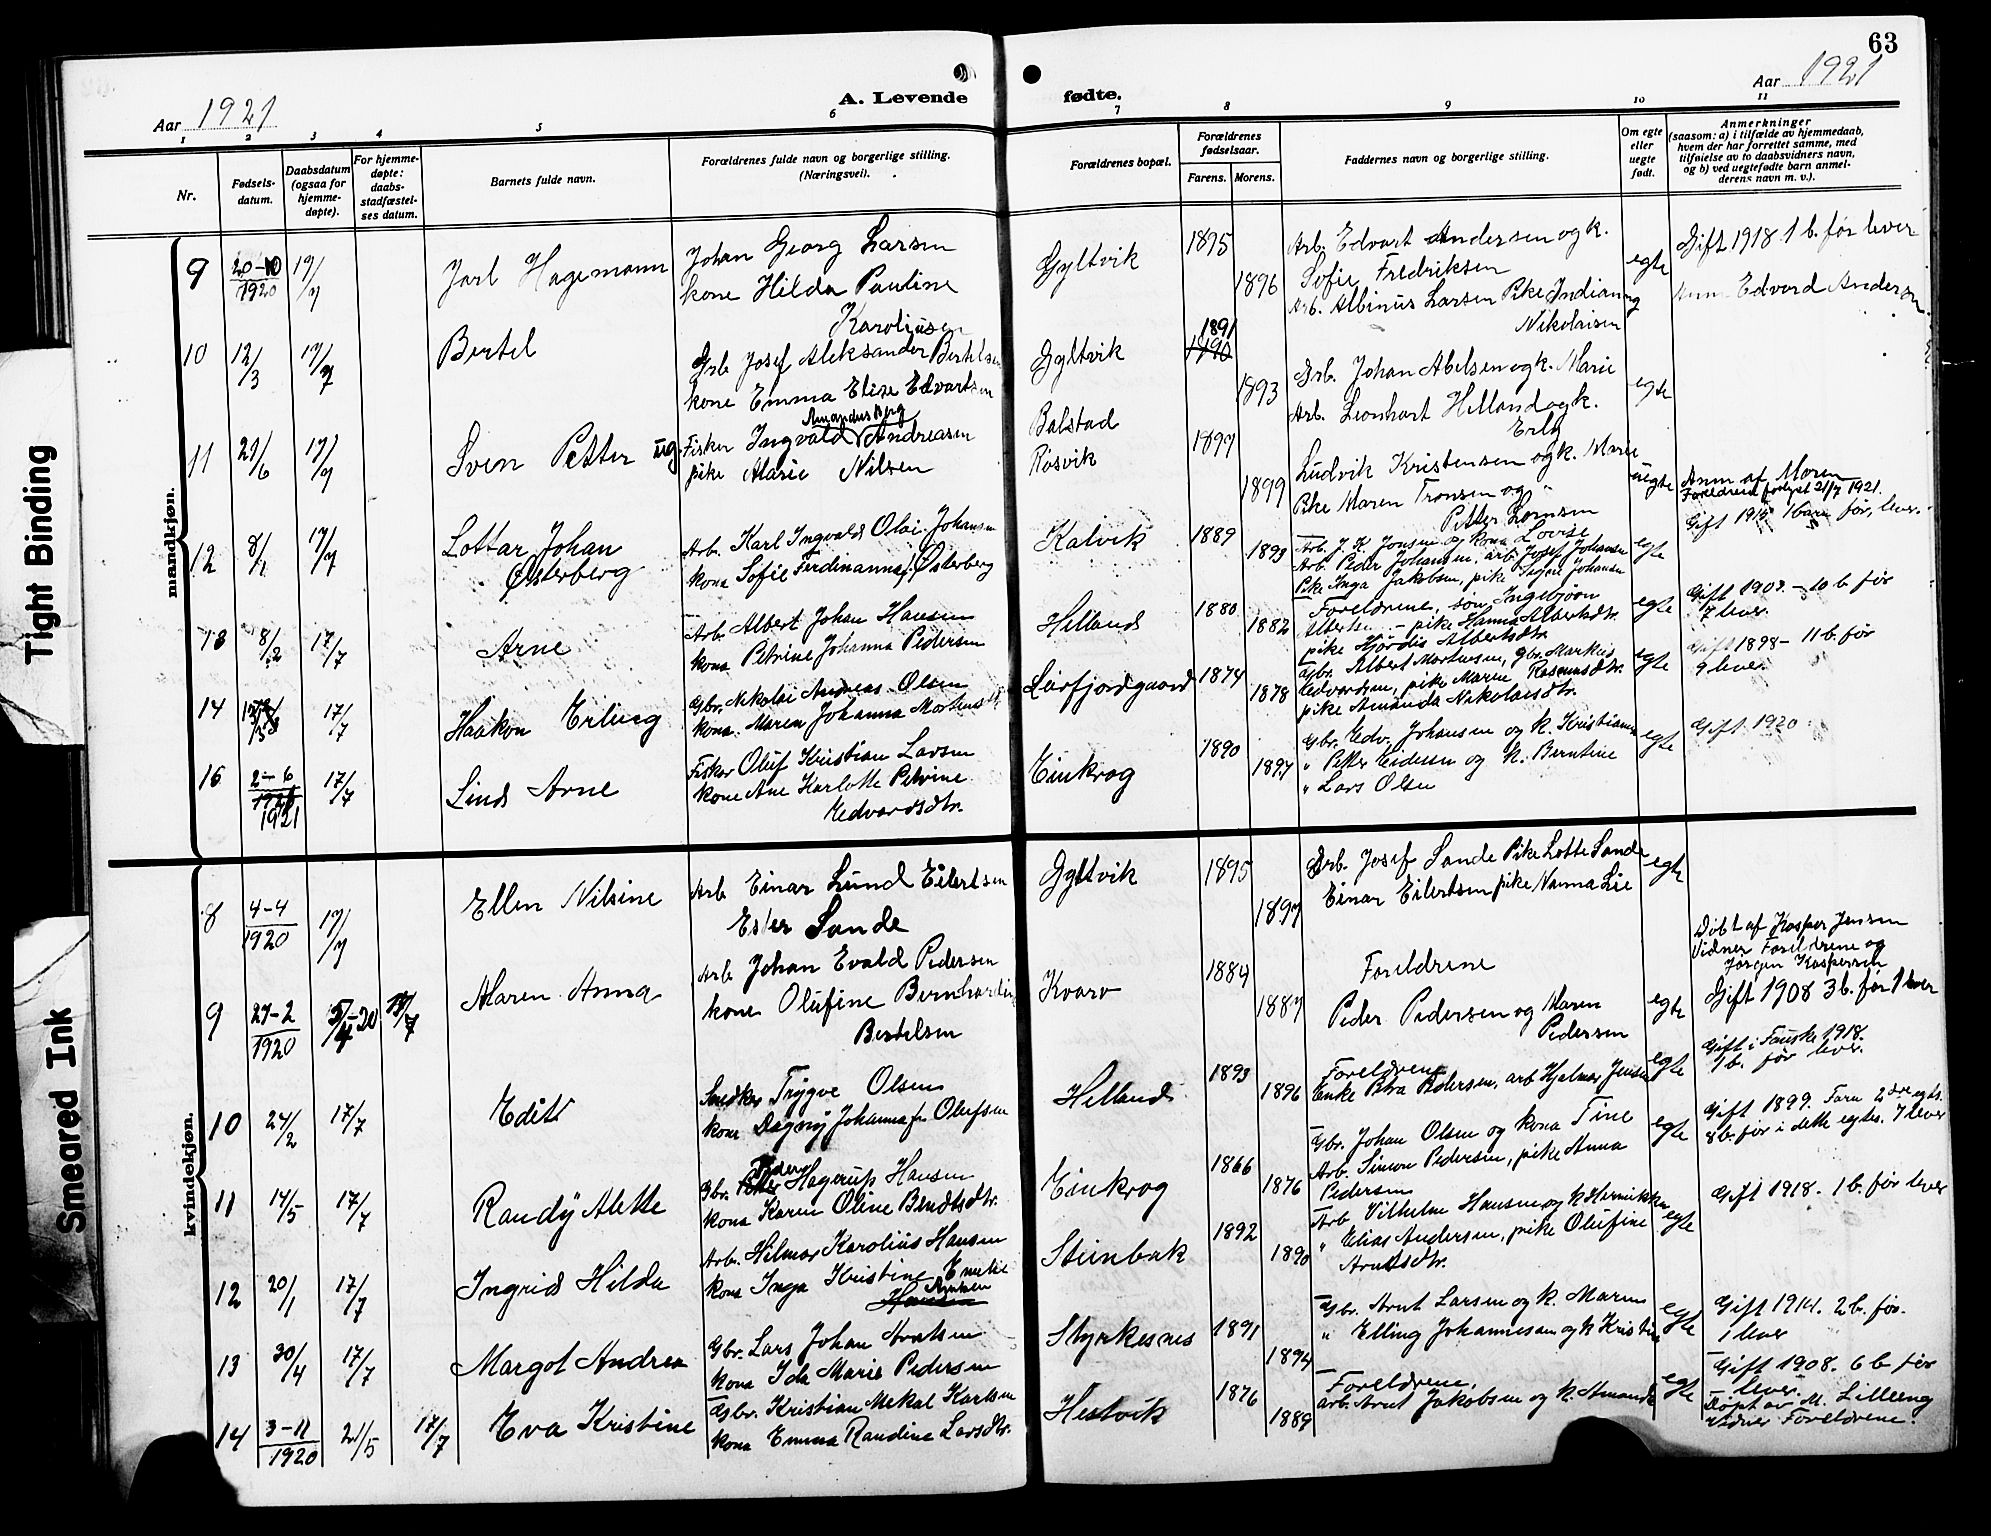 63
Aar 1921
A. Levende fødte.
Aar 1921
1 2 3 4 5 6 7 8 9 10 11
Nr.
Fødsels-
datum.
Daabsdatum
(ogsaa for
hjemme-
døpte).
For hjemme-
døpte:
daabs-
stadfæstel-
ses datum.
Barnets fulde navn.
Forældrenes fulde navn og borgerlige stilling.
(Næringsvei).
Forældrenes bopæl.
Forældrenes
fødselsaar.
Farens. Morens.
Faddernes navn og borgerlige stilling.
Om egte
eller
uegte
født.
Anmerkninger
(saasom: a) i tilfælde av hjemmedaab,
hvem der har forrettet samme, med
tilføielse av to daabsvidners navn,
og b) ved uegtefødte barn anmel-
derens navn m. v.).
mandkjøn.
9 20-10 1920 17/7 Jarl Hagemann
Johan Georg Larsen
kone Hilda Pauline
Karoliusen
Gyltvik 1895 1896
Arb. Edvart Andersen og k.
Sofie Fredriksen
Arb. Albinus Larsen Pike Indianng
Nikolaisen
egte
Gift 1918 1 b. før lever
Anm Edvard Andersen
10 12/3 17/7 Bertel
Grb Josef Aleksander Bertelsen
kone Emma Elise Edvartsen
Gyltvik 1891 1890 1893
Grb. Johan Abelsen og k. Marie
Arb. Leonhart Helland og k.
Erly
egte
11 21/6 17/7 Sven Petter ug.
Amandus Berg
Fisker Ingvald Andreasen
pike Marie Nilsen
Balstad
Røsvik
1897 1899
Ludvik Kristensen og k. Marie
Pike Maren Tronsen og
Petter Lornsen
uegte
Anm af Moren
Foreldrene 21/7 1921.
12 8/1 17/7 Lottar Johan
Østerberg
Arb. Karl Ingvald Olai Johansen
kona Sofie Ferdinanna f. Østerberg
Kalvik 1889 1893
Arb. J. K. Jonsen og kona Lovise
Arb. Peder Johansen, arb. Josef Johansen
Pike Inga Jakobsen, pike Signe Johansen
egte
Gift 1915 1 barn før, lever.
13 8/2 17/7 Arne
Arb. Albert Johan Hansen
kona Petrine Johanna Pedersen
Helland 1880 1882
Foreldrene, søn Ingebjørn
Albertsen - pike Hanna Albertsdtr.
pike Hjørdis Albertsdtr.
egte
Gift 1903. - 10 b. før
7 lever.
14 17/7 Haakon Erling
Gbr. Nikolai Andreas Olsen
kona Maren Johanna Mortensdtr
Leirfjordgaard 1874 1878
Gbr. Albert Mortensen, gbr. Markus
Edvardsen, pike Maren Rasmusdtr.
pike Amanda Nikolaisdtr.
egte
Gift 1898 - 11 b. før
9 lever.
15 2-6 1921 17/7 Lind Arne
Fisker Oluf Kristian Larsen
kone Ane Karlotte Petrine
Edvardsdtr.
Einkrog 1890 1897
Gbr. Edv. Johansen og k. Kristianna
" Petter Eidesen og k. Berntine
" Lars Olsen
egte
Gift 1920
kvindekjøn.
8 4-4 1920 17/7 Ellen Nilsine
Arb Einar Lund Eilertsen
Ester Sande
Gyltvik 1895 1897
Grb. Josef Sande Pike Lotte Sande
Einar Eilertsen pike Nanna Lie
egte
9 27-2 1920 5/4-20 17/7 Maren Anna
Arb Johan Evald Pedersen
kone Olufine Bernhardin
Bertelsen
Kvarv 1884 1887
Foreldrene
Peder Pedersen og Maren
Pedersen
egte
Døbt af Kasper Jensen
Vidner Foreldrene og
Jørgen Kaspersen
Gift 1908 3 b. før 1 lever
10 24/2 17/7 Edith
Snedker Trygve Olsen
kone Dagny Johanna f. Olufsen
Helland 1893 1896
Foreldrene
Enke Petra Pedersen, arb Hjalmar Jensen
egte
Gift i Fauske 1918.
1 b. før lever.
11 14/5 17/7 Randy Alette
Gbr. Peder Hagerup Hansen
kona Karen Oline Bendtsdtr.
Einkrog 1866 1876
Gbr. Johan Olsen og kona Tine
Arb. Simon Pedersen, pike Anna
Pedersen
egte
Gift 1899. Faren 2den egts.
8 b. før i dette egtes. 7 lever
12 20/1 17/7 Ingrid Hilda
Arb. Hilmar Karolius Hansen
kona Inga Kristine Emelie
Hansen
Steinbak 1892 1890
Arb. Vilhelm Hansen og k Henrikke
" Elias Andersen, pike Olufine
Arntsdtr.
egte
Gift 1918. 1 b. før lever
13 30/4 17/7 Margot Andrea
Gbr. Lars Johan Arntsen
kona Ida Marie Pedersen
Styrkesnes 1891 1894
Gbr. Arnt Larsen og k. Maren
" Elling Johannesen og k Kristin
egte
Gift 1914. 2 b. før.
1 lever
14 3-11 1920 21/5 17/7 Eva Kristine
Gbr. Kristian Mekal Karlsen
kona Emma Randine Larsdtr.
Hestvik 1876 1889
Foreldrene,
arb. Arnt Jakobsen og k. Amanda
egte
Gift 1908. 6 b før
lever.
Døpt av M. Lilleeng
vidner Foreldrene.
Tight Binding
Smeared Ink